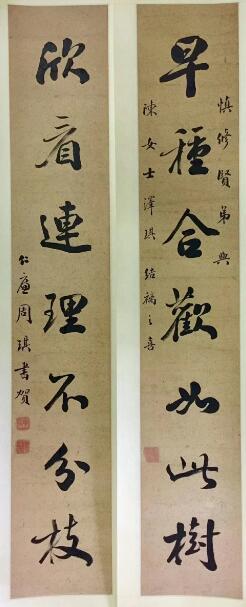 慎修賢弟與
陳女士澤琪結褵之喜
早種合歡如此樹
欣看連理不分枝
仁廬周琪書賀